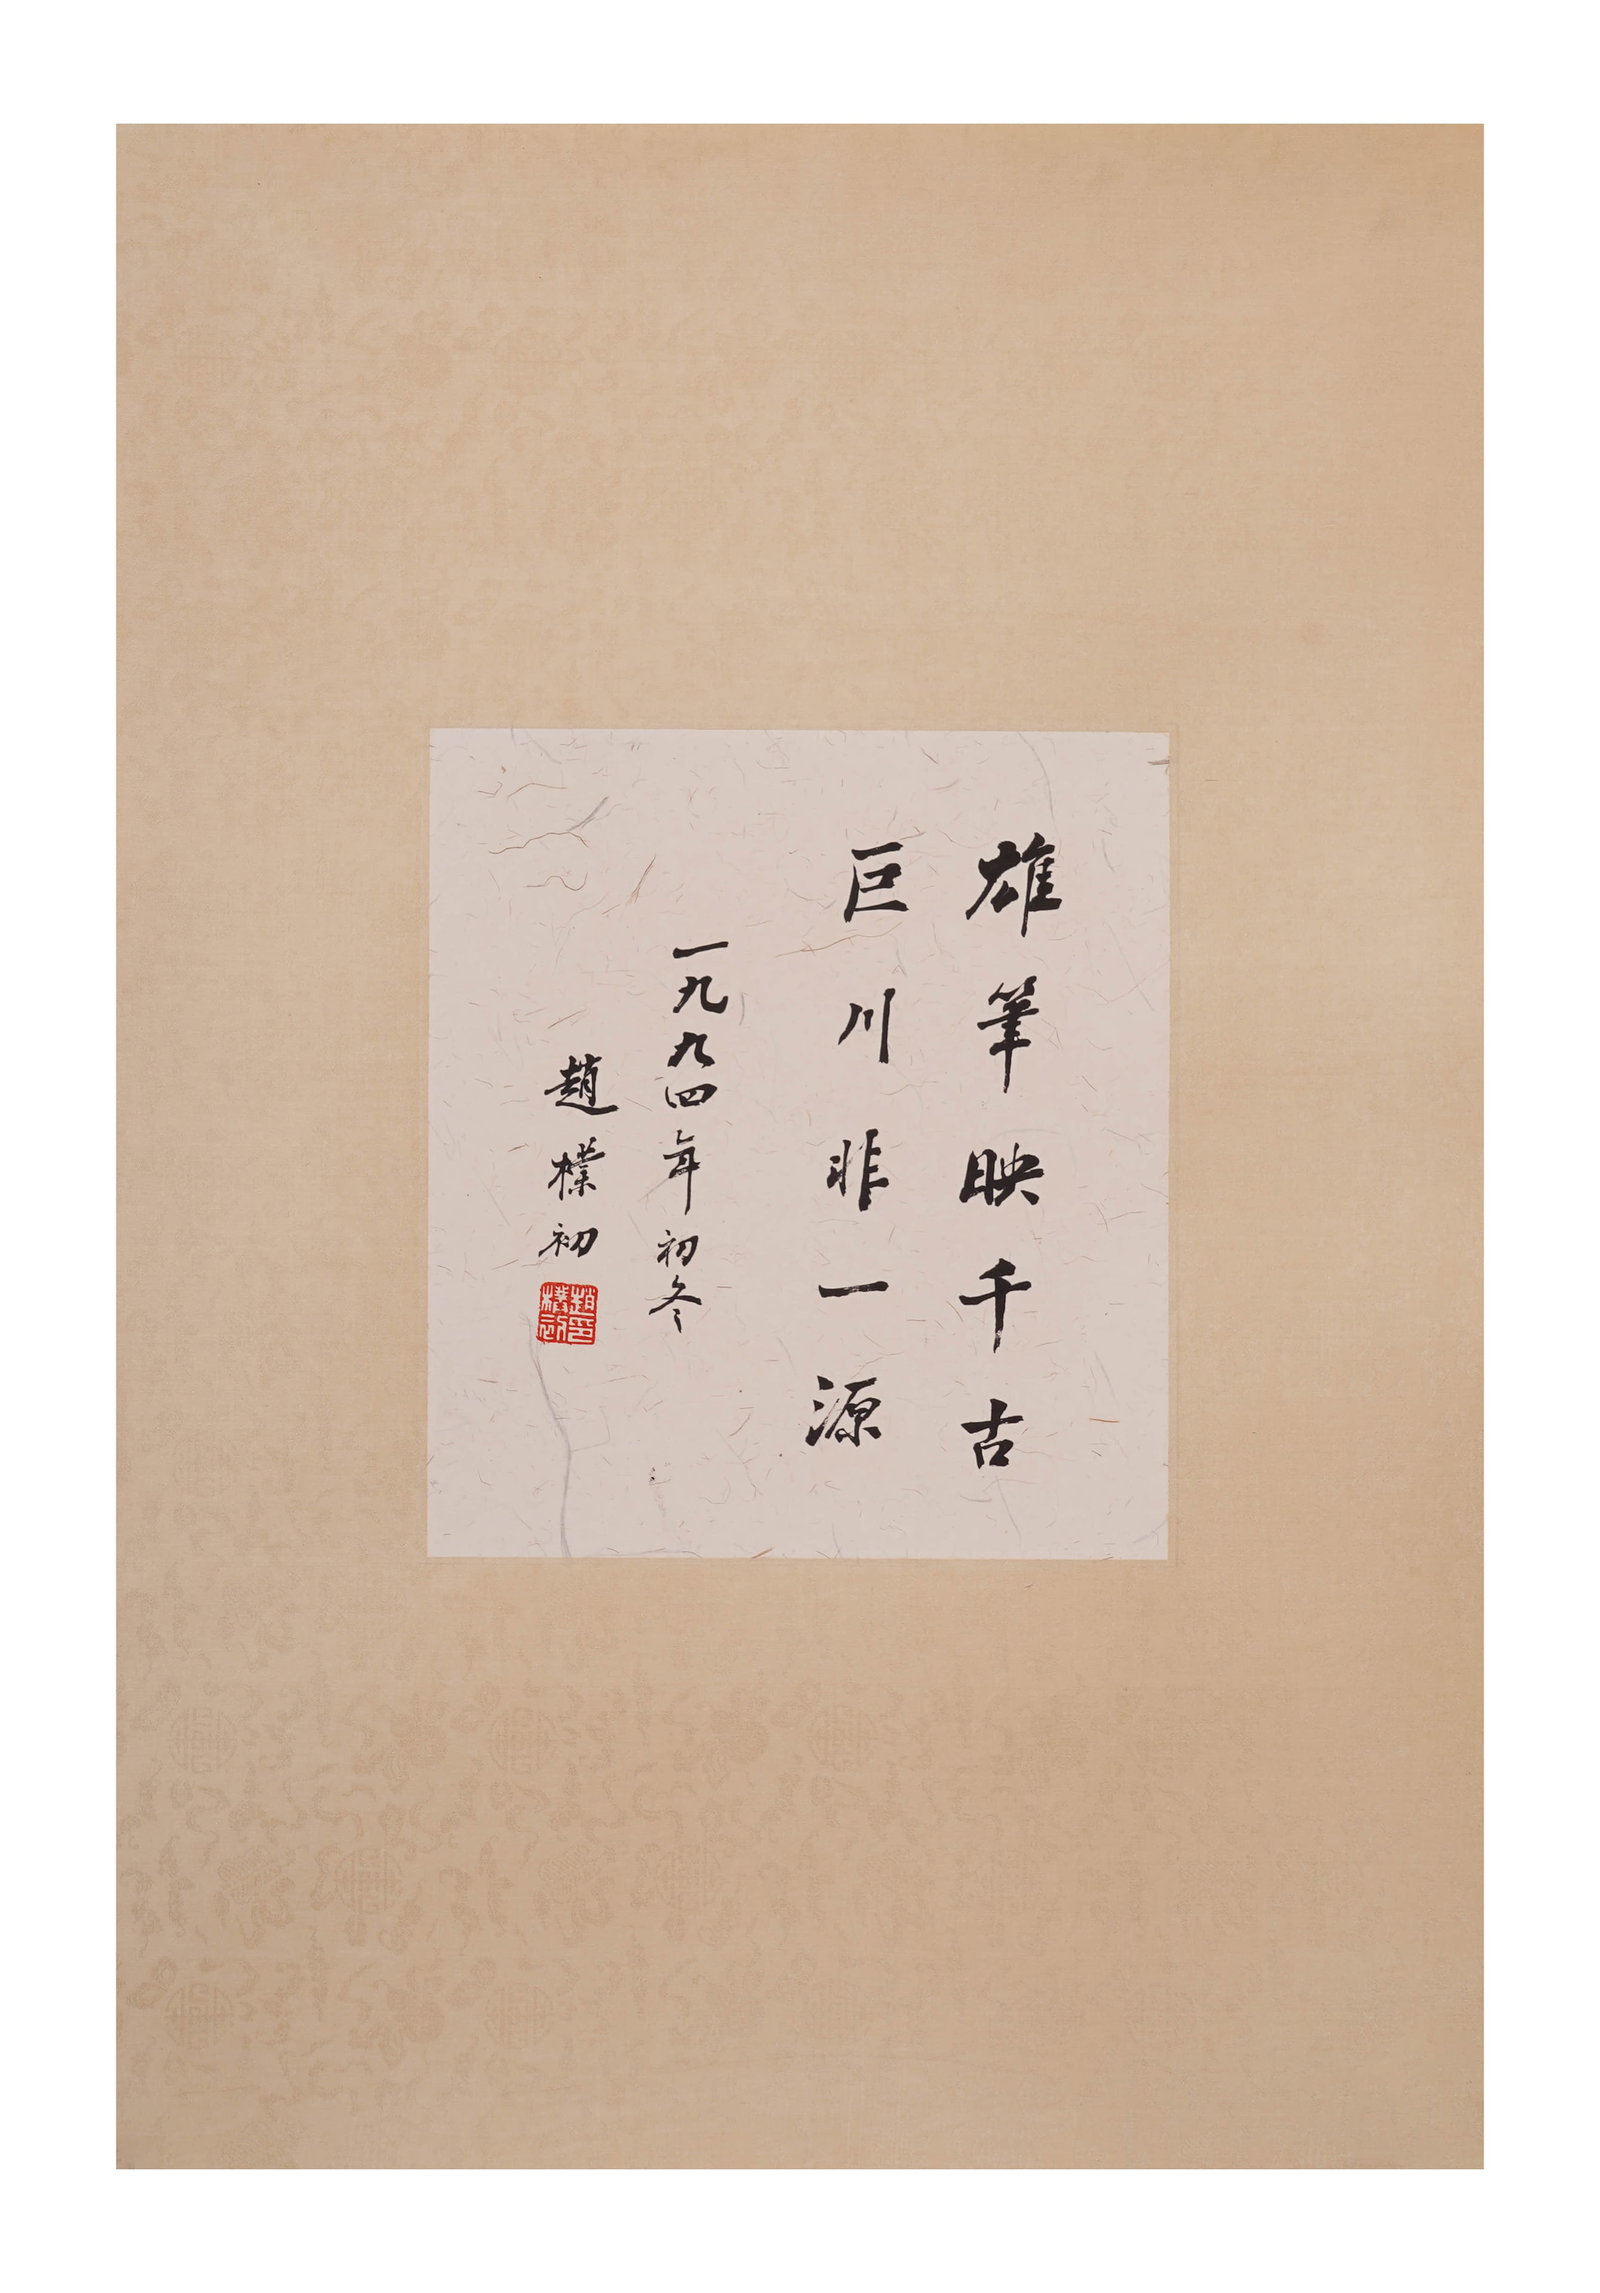 雄筆映千古
巨川非一源
一九九四年初冬
趙樸初
趙樸初印